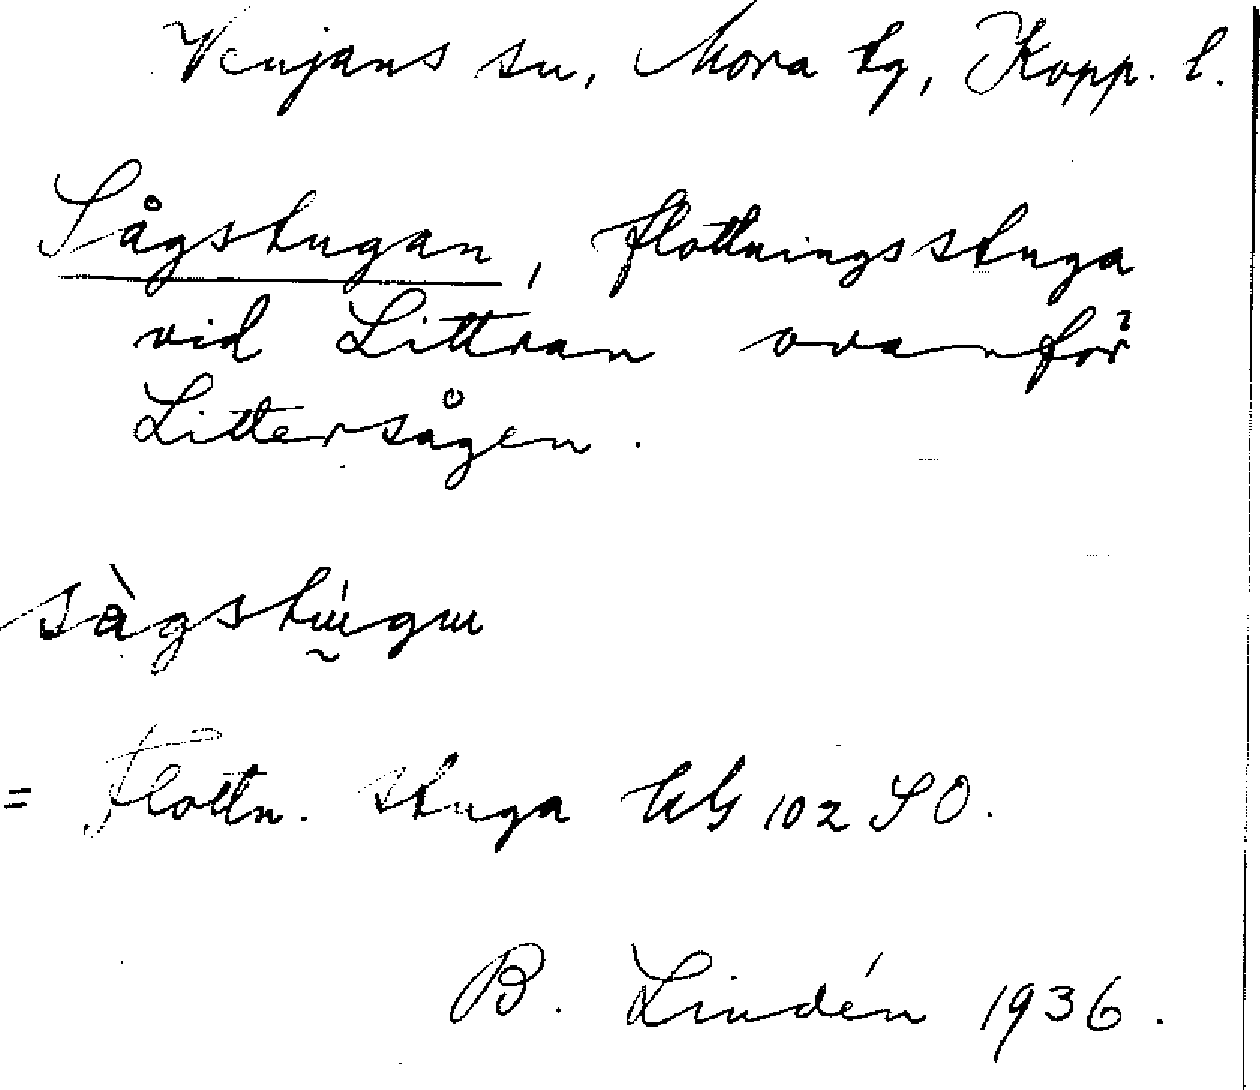 Venjans sn, Mora tg, Kopp. l.
Sågstugan, flottningsstuga
vid Littran ovanför
Littersågen.
= Flottn. stuga 102 SO.
B. Lindén 1936.